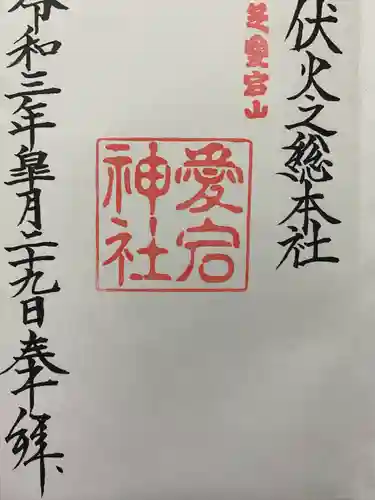 伏火之総本社
芝愛宕山
愛宕
神社
令和三年皐月二十九日奉拝